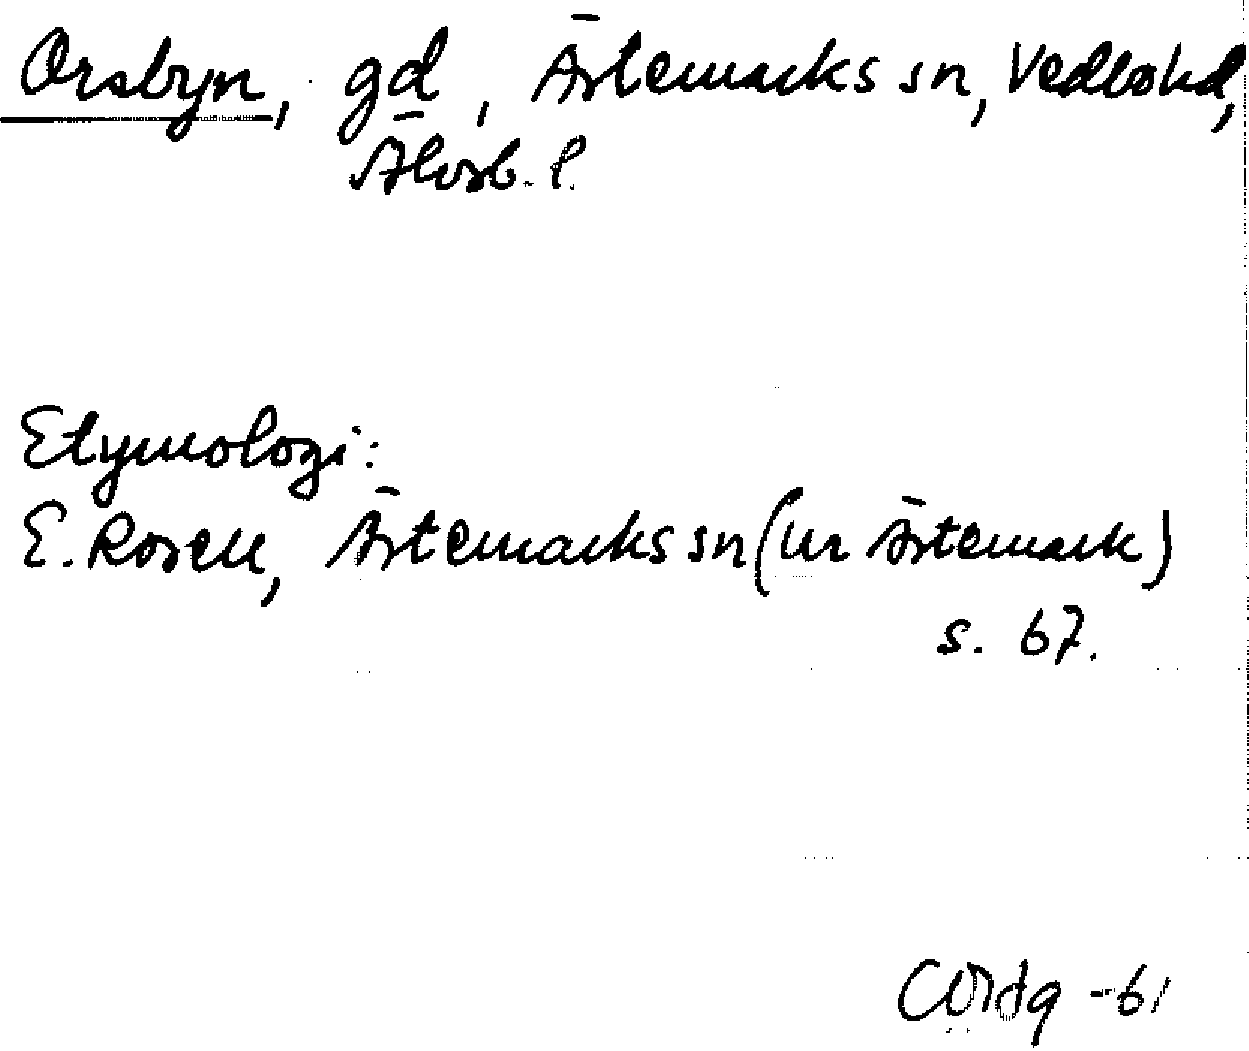 Orsbyn, gd, Ärtemarks sn, Vedbohd,
Älvsb. l.
Etymologi:
E. Rosell, Ärtemarks sn (ur Ärtemark)
s. 67.
-61